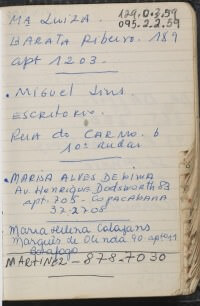 Ma Luiza. 129.0.3.59
095-2.2.59
Barata Ribeiro. 189
apt 1203.
. Miguel Lins.
Escritorio.
Rua do Carmo. 6
10º andar
. Marisa Alves de Lima
Av. Henrique Dodsworth 83
apt-205-Copacabana
37-2708
Maria Helena
Marquês de Olinda 90
Botafogo
Martinez - 878-7030